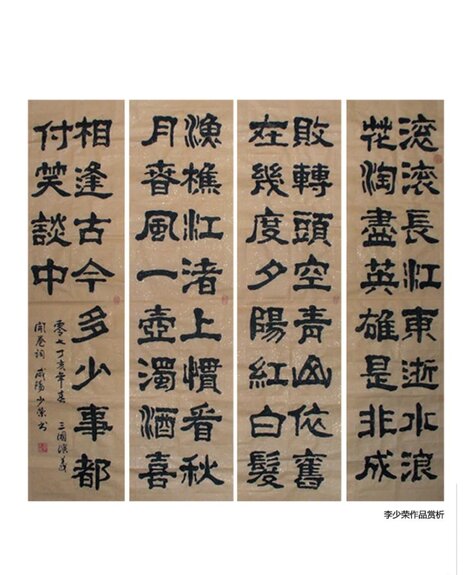 滚滚長江東逝水浪
花淘盡英雄是非成
敗轉頭空青山依舊
在幾度夕陽紅白髮
漁樵江渚上慣看秋
月春風一壺濁酒喜
相逢古今多少事都
付笑談中
零七丁亥年春 三國演義
開卷詞 咸陽少榮書
李少荣作品赏析